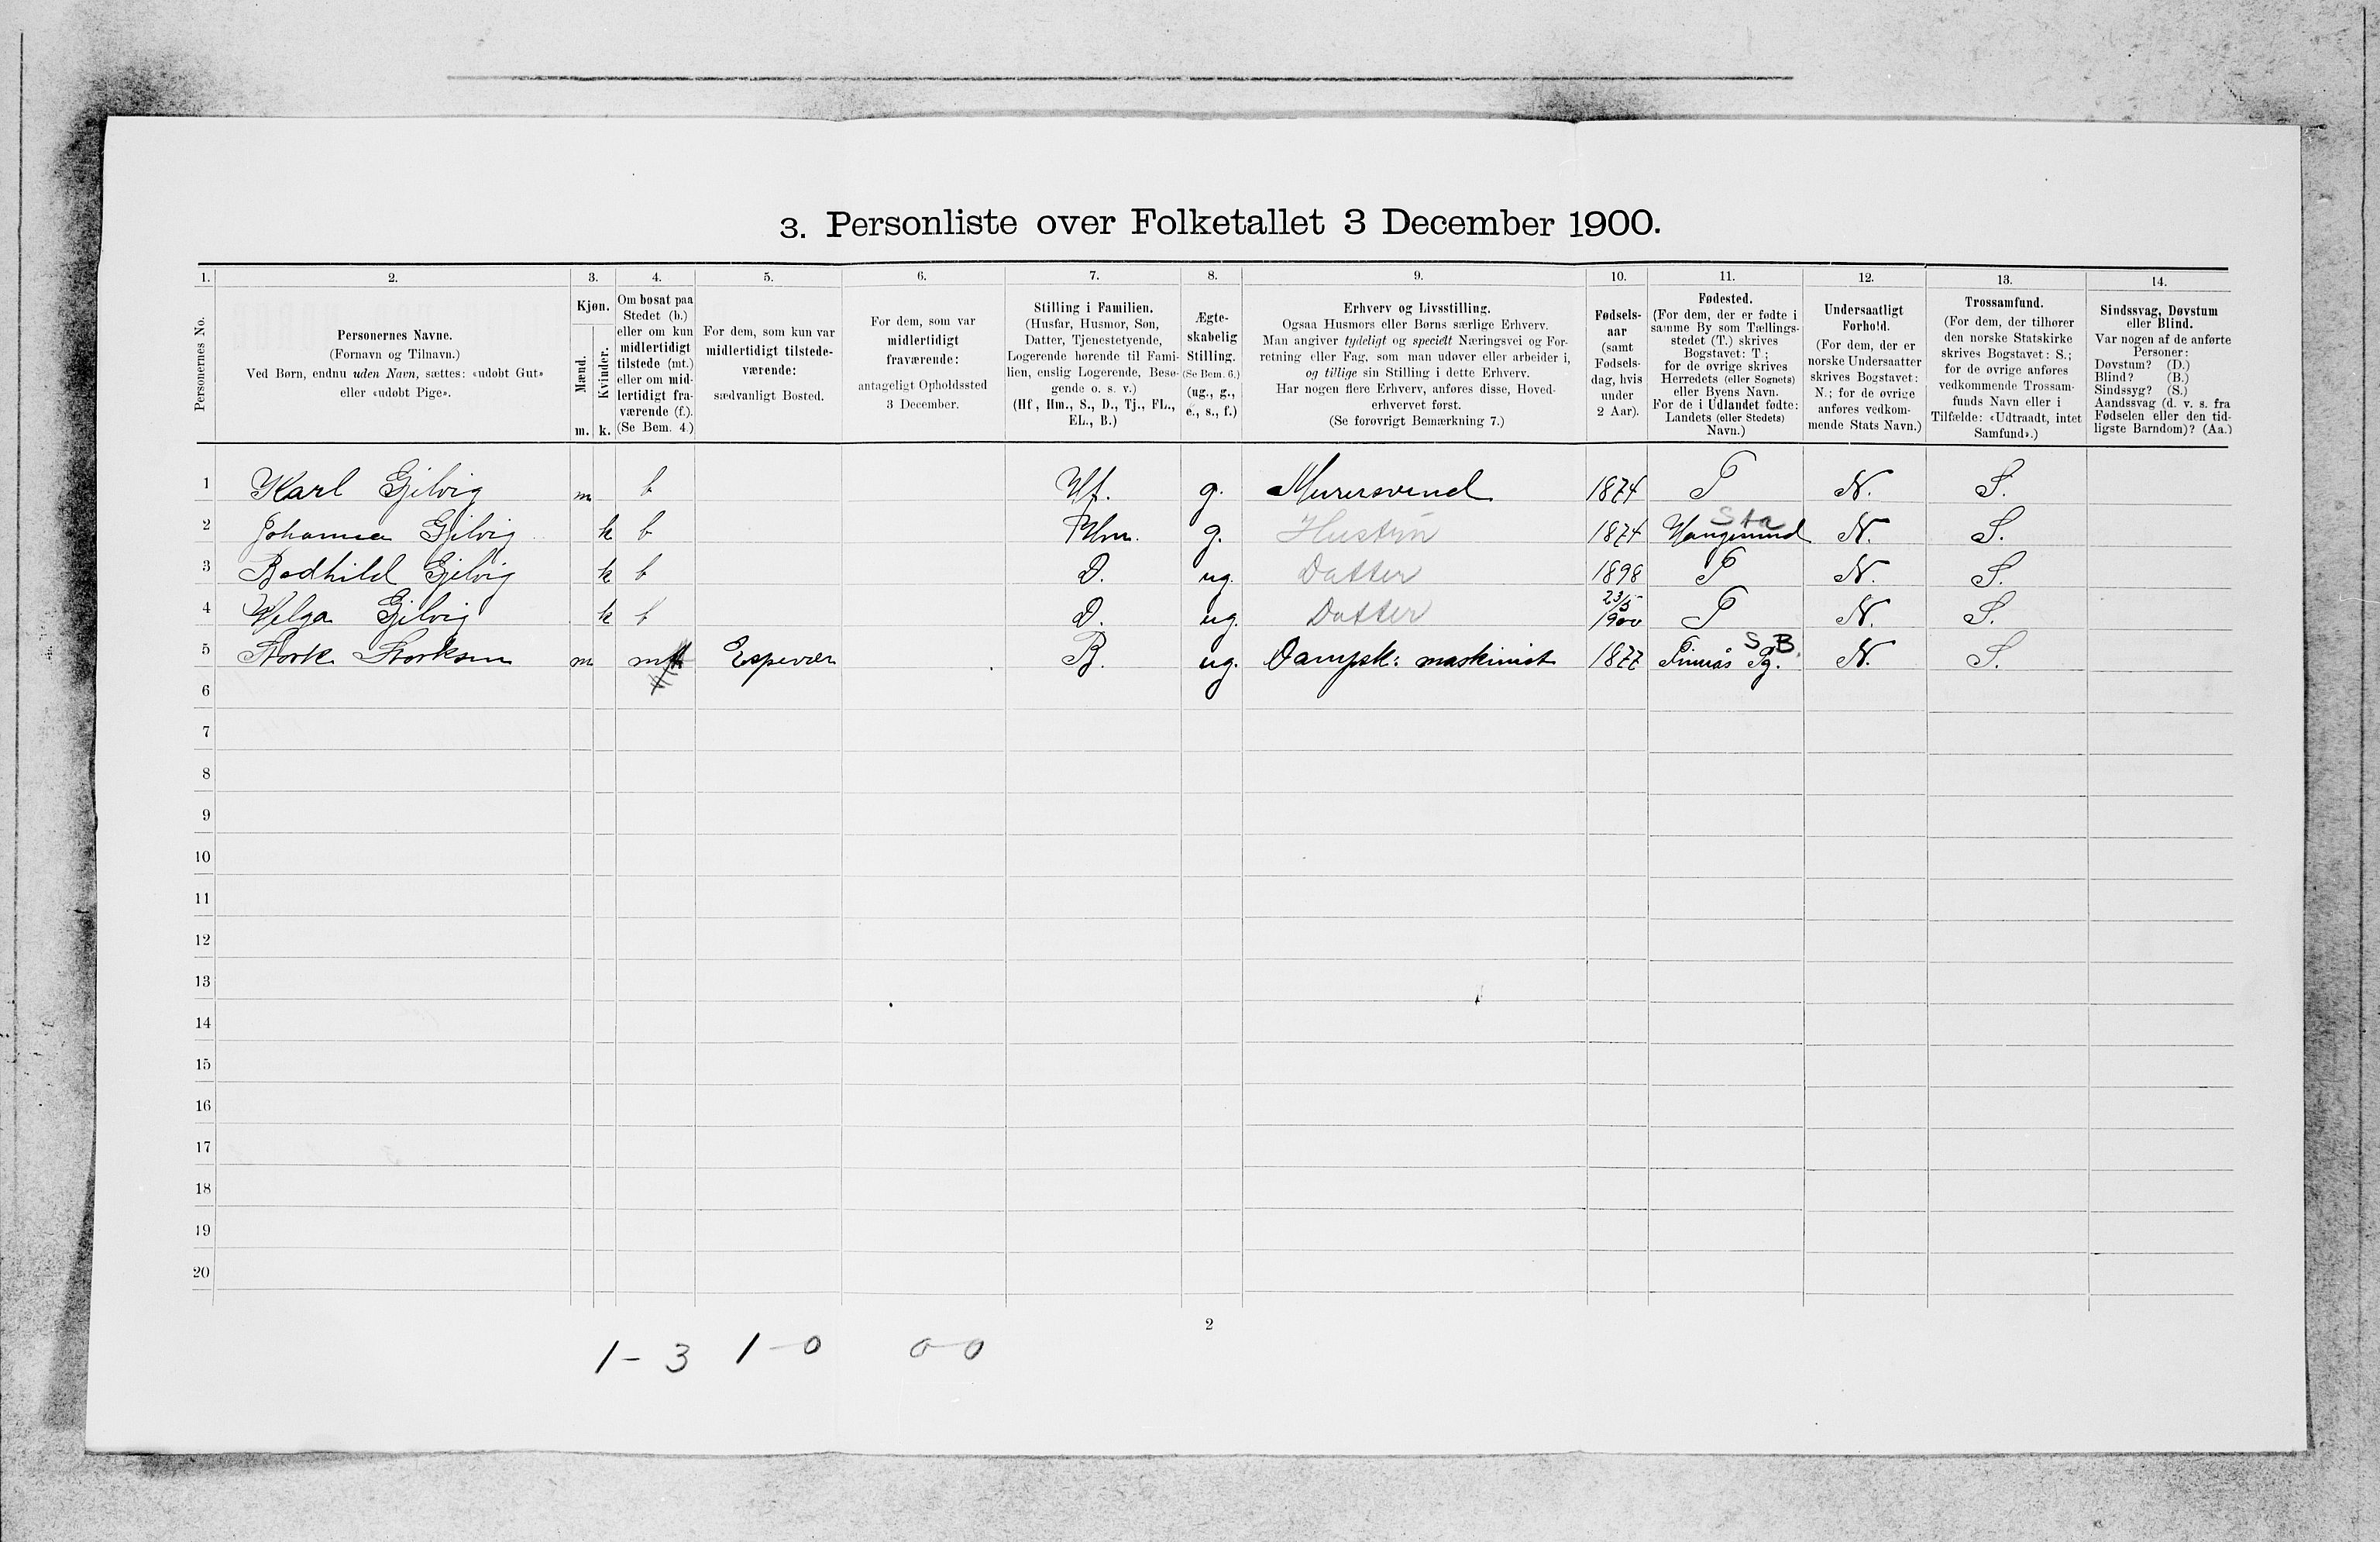 3. Personliste over Folketallet 3 December 1900.
1. 2. 3. 4. 5. 6. 7. 8. 9. 10. 11. 12. 13. 14.
Personernes No.
Personernes Navne.
(Fornavn og Tilnavn.)
Ved Børn, endnu uden Navn, sættes: «udøbt Gut»
eller «udøbt Pige».
Kjøn.
Mænd.
m.
Kvinder.
k.
Om bosat paa
Stedet (b.)
eller om kun
midlertidigt
tilstede (mt.)
eller om mid-
lertidigt fra-
værende (f.).
(Se Bem. 4.)
For dem, som kun var
midlertidigt tilstede-
værende:
sædvanligt Bosted.
For dem, som var
midlertidigt
fraværende:
antageligt Opholdssted
3 December.
Stilling i Familien.
(Husfar, Husmor, Søn,
Datter, Tjenestetyende,
Logerende hørende til Fami-
lien, enslig Logerende, Besø-
gende o. s. v.)
(Hf., Hm., S., D., Tj., FL.,
EL., B.)
Ægte-
skabelig
Stilling.
(Se Bem. 6.)
(ug., g.,
e., s., f.)
Erhverv og Livsstilling.
Ogsaa Husmors eller Børns særlige Erhverv.
Man angiver tydeligt og specielt Næringsvei og For-
retning eller Fag, som man udøver eller arbeider i,
og tillige sin Stilling i dette Erhverv.
Har nogen flere Erhverv, anføres disse, Hoved-
erhvervet først.
(Se forøvrigt Bemærkning 7.)
Fødsels-
aar
(samt
Fødsels-
dag, hvis
under
2 Aar).
Fødested.
(For dem, der er fødte i
samme By som Tællings-
stedet (T.) skrives
Bogstavet: T.;
for de øvrige skrives
Herredets (eller Sognets)
eller Byens Navn.
For de i Udlandet fødte:
Landets (eller Stedets)
Navn.)
Undersaatligt
Forhold.
(For dem, der er
norske Undersaatter
skrives Bogstavet:
N.; for de øvrige
anføres vedkom-
mende Stats Navn.)
Trossamfund.
(For dem, der tilhører
den norske Statskirke
skrives Bogstavet: S.;
for de øvrige anføres
vedkommende Trossam-
funds Navn eller i
Tilfælde: «Udtraadt, intet
Samfund».)
Sindssvag, Døvstum
eller Blind.
Var nogen af de anførte
Personer:
Døvstum? (D.)
Blind? (B.)
Sindssyg? (S.)
Aandssvag (d. v. s. fra
Fødselen eller den tid-
ligste Barndom)? (Aa.)
1 Karl Gjelvig m b Hf. g. Murersvend 1874 T N. S.
Sta
2 Johanna Gjelvig k b Hm. g. Hustru 1874 Haugesund N. S.
3 Bodhild Gjelvig k b D. ug. Datter 1898 T N. S.
23/5
4 Helga Gjelvig k b D. ug. Datter 1900 T N. S.
S B.
5 Stork Storksen m mt Espevær B. ug. Dampsk: maskinist 1877 Finnås Pg. N. S.
6
7
8
9
10
11
12
13
14
15
16
17
18
19
20
2
1 - 3 1 - 0 0 - 0